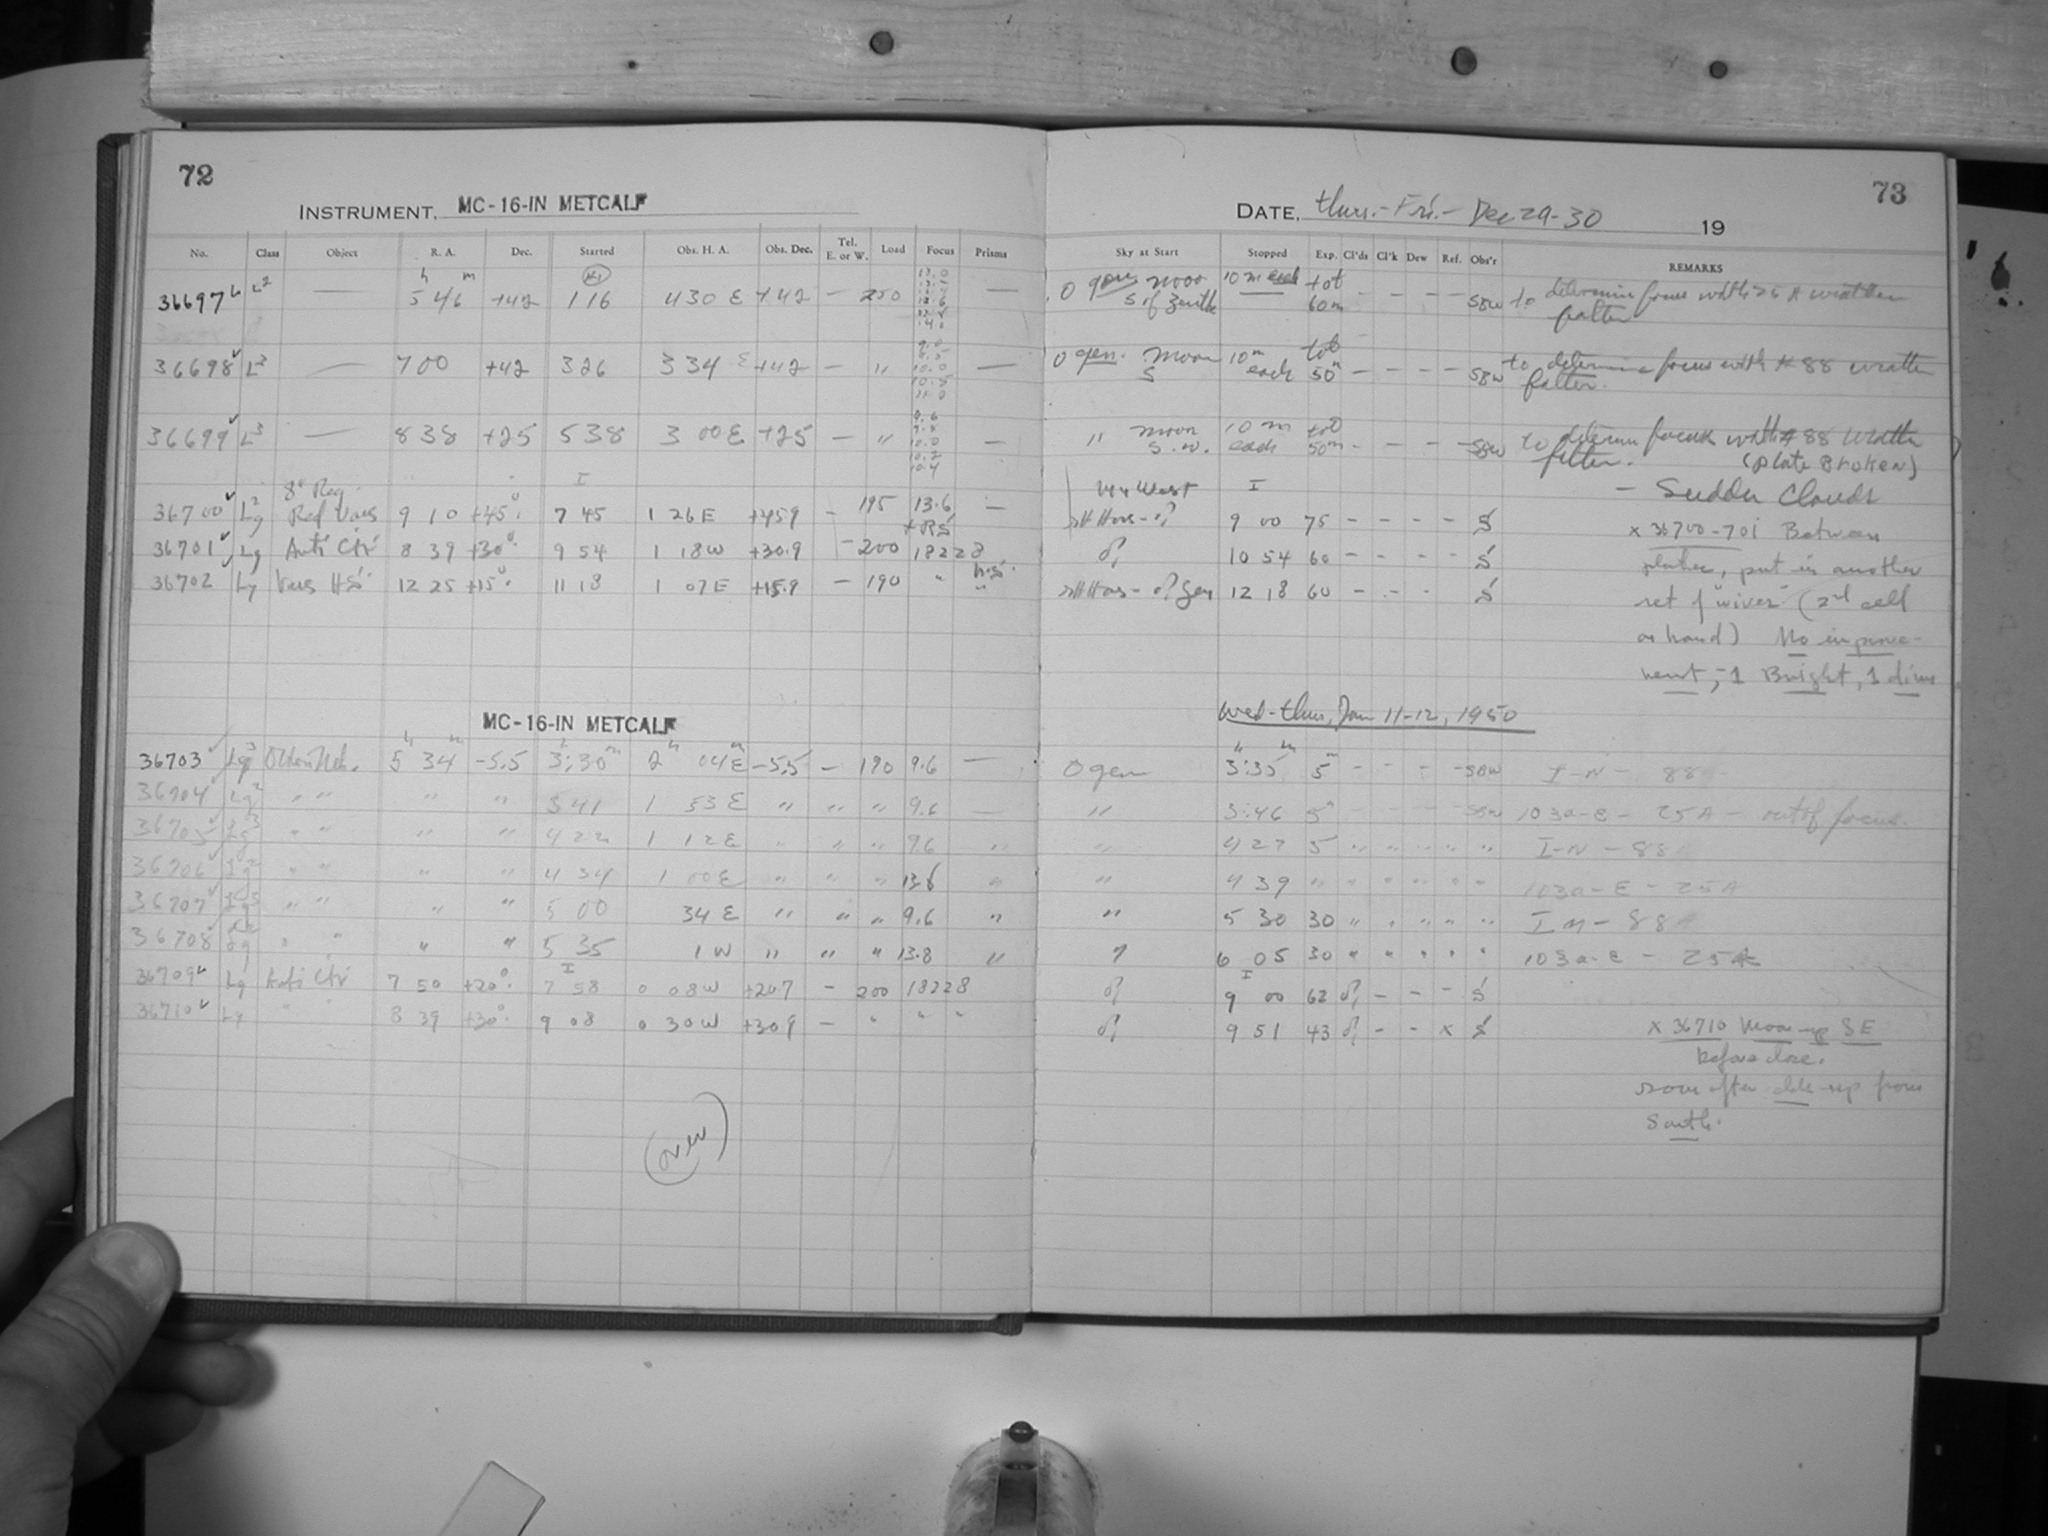 72
INSTRUMENT, MC-16-IN METCALF
No. Class Object R. A. Dec. Started Obs. H. A. Obs. Dec. Tel. E. or W. Load Focus Prisms
36697 L2 — 5h 46m +42 1 16 4 30 E +42 — 250 —
36698 L3 — 7 00 +42 3 26 3 34 E +42 — " 10.0 10.5 11.0 —
36699 L3 — 8 38 +25 5 38 3 00 E +25 — " 10.0 10.2 10.4 —
36700 Lg2 Red Vars 9 10 +45° 7 45 1 26 E +45.9 — 195 13.6 —
36701 Lg Anti Ctr 8 39 +30° 9 54 1 18 W +30.9 — 200 18228
36702 Lg Vars HS 12 25 +15° 11 18 1 07 E +15.9 — 190 " "
MC-16-IN METCALF
36703 Lg3 Orion Neb. 5h 34m -5.5 3:30 2h 04m E -5.5 — 190 9.6 —
36704 Lg2 " " " " 3 41 1 53 E " " " 9.6 —
36705 Lg3 " " " " 4 22 1 12 E " " " 9.6 "
36706 Lg2 " " " " 4 34 1 00 E " " " 13.8 "
36707 Lg3 " " " " 5 00 34 E " " " 9.6 "
36708 Lg2 " " " " 5 35 1 W " " " 13.8 "
36709 Lg Anti Ctr 7 50 +20° 7 58 0 08 W +20.7 — 200 18228
36710 Lg " " 8 39 +30° 9 08 0 30 W +30.9 — " " "
(over)
73
DATE, Thurs.-Fri.- Dec 29-30 19
Sky at Start Stopped Exp. Cl'ds Cl'k Dew Ref. Obs'r REMARKS
0 gen moon S of Zenith 10 m each tot 60m - - - - SBW to determine focus with 25 A wratten filter
0 gen. moon S 10m each tot 50m - - - - SBW to determine focus with # 88 wratten filter.
" moon S.W. 10 m each tot 50m - - - - SBW to determine focus with # 88 wratten filter. (plate Broken)
— Sudden Clouds
9 00 75 - - - - S x 36700-701 Between
10 54 60 - - - - S plates, put in another
12 18 60 - - - S set of "wires" (2nd cell
on hand) No improve-
ment, -1 Bright, 1 dim
Wed-Thurs, Jan 11-12, 1950
0 gen 3:35 5m - - - - SBW I-N - 88
" 3:46 5m - - - - SBW 103a-E - 25A - out of focus.
" 4 27 5 " " " " " I-N - 88
" 4 39 " " " " " " 103a-E - 25A
" 5 30 30 " " " " " I N - 88
" 6 05 30 " " " " " 103a-E - 25A
9 00 62 - - - S
9 51 43 - - x S x 36710 Moon-up SE
before close.
soon after clds-up from
South.